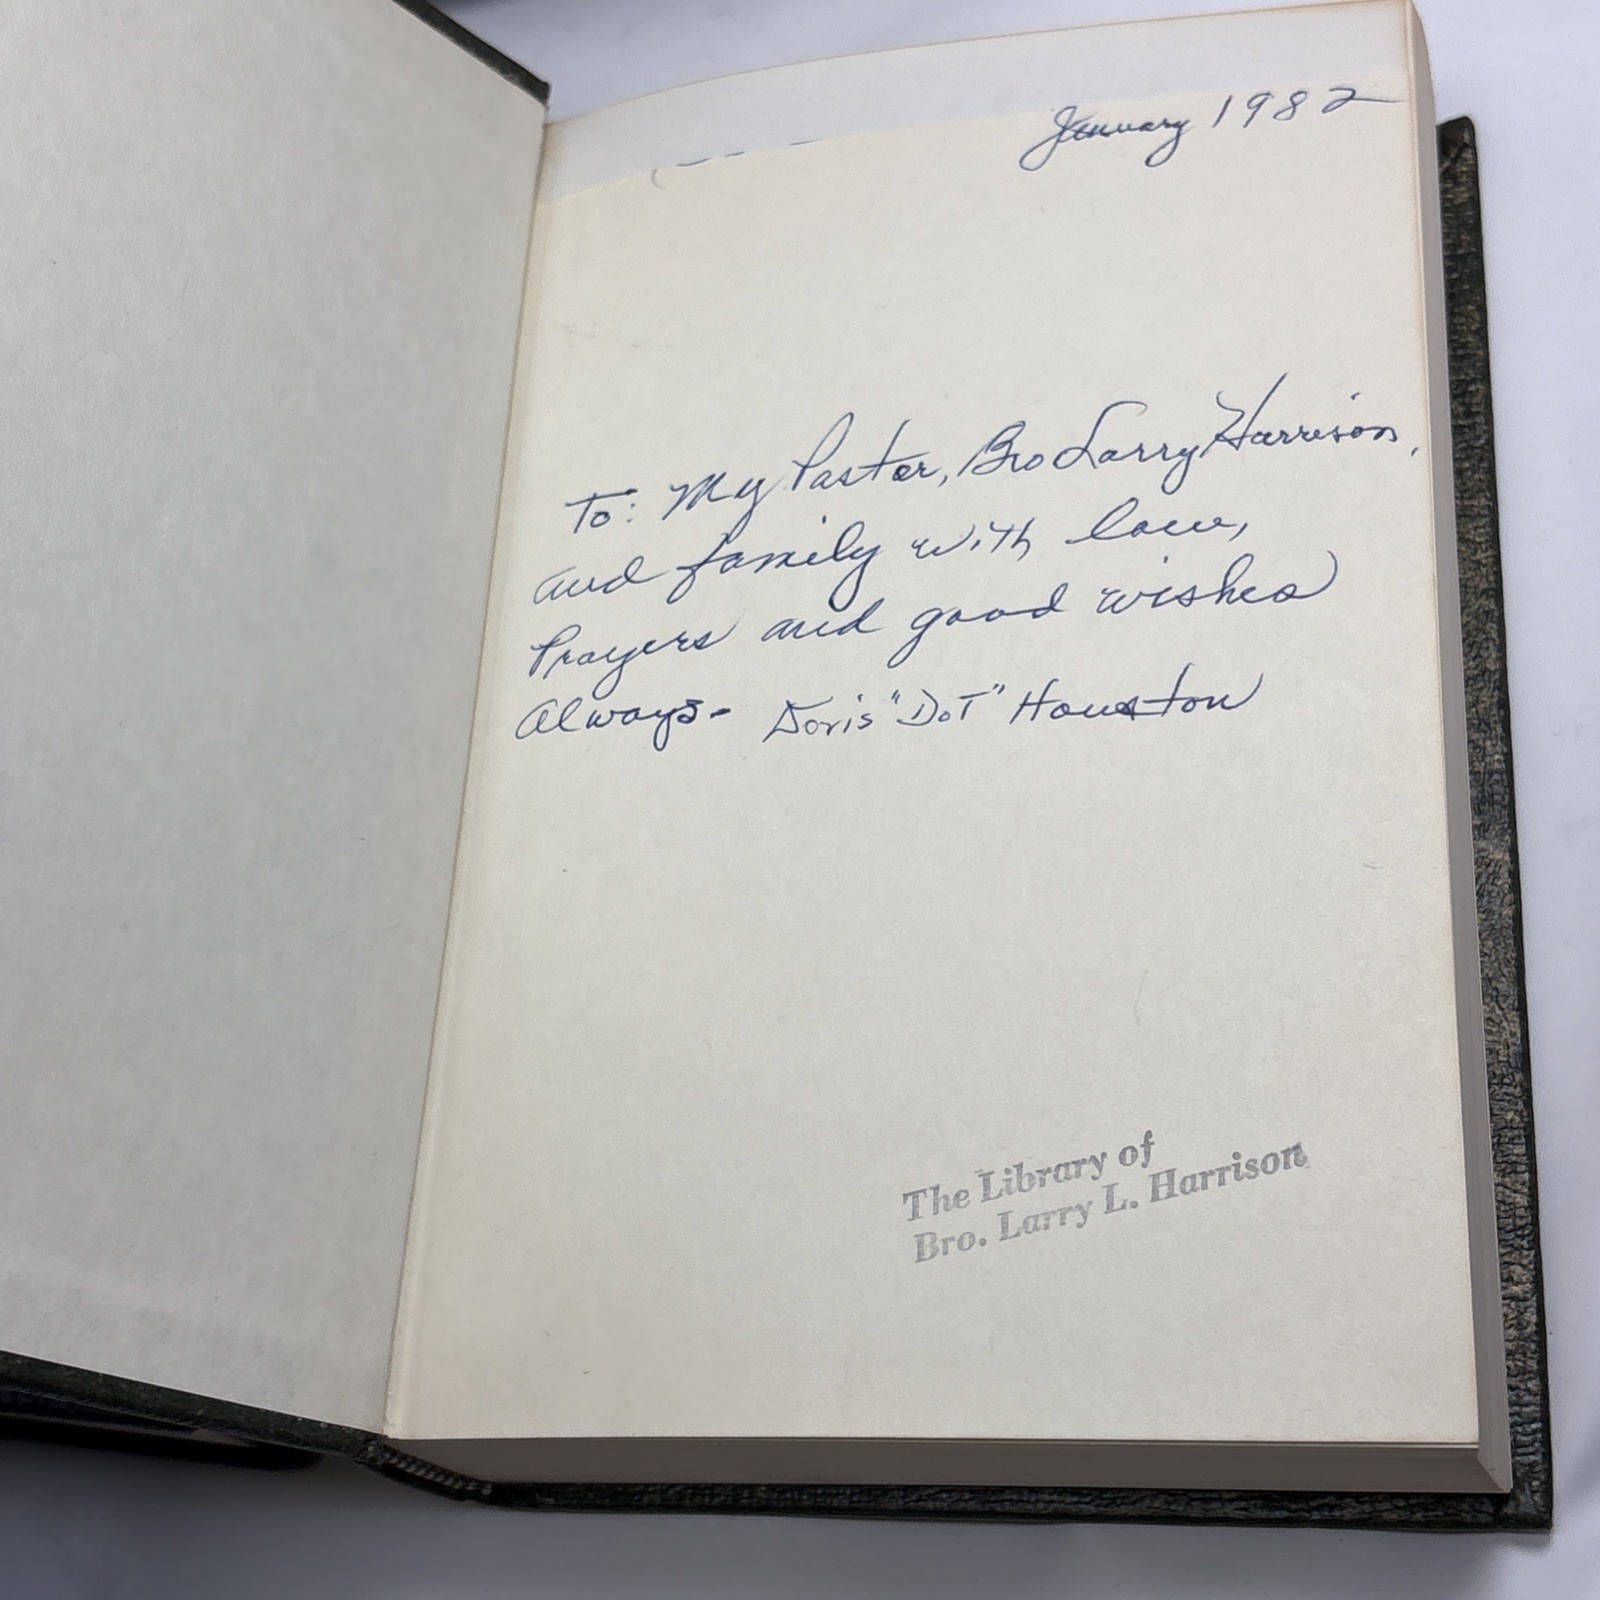 January 1982
To: My Pastor, Bro Larry Harrison,
and family with love,
Prayers and good wishes
Always- Doris "Dot" Houston
The Library of
Bro. Larry L. Harrison